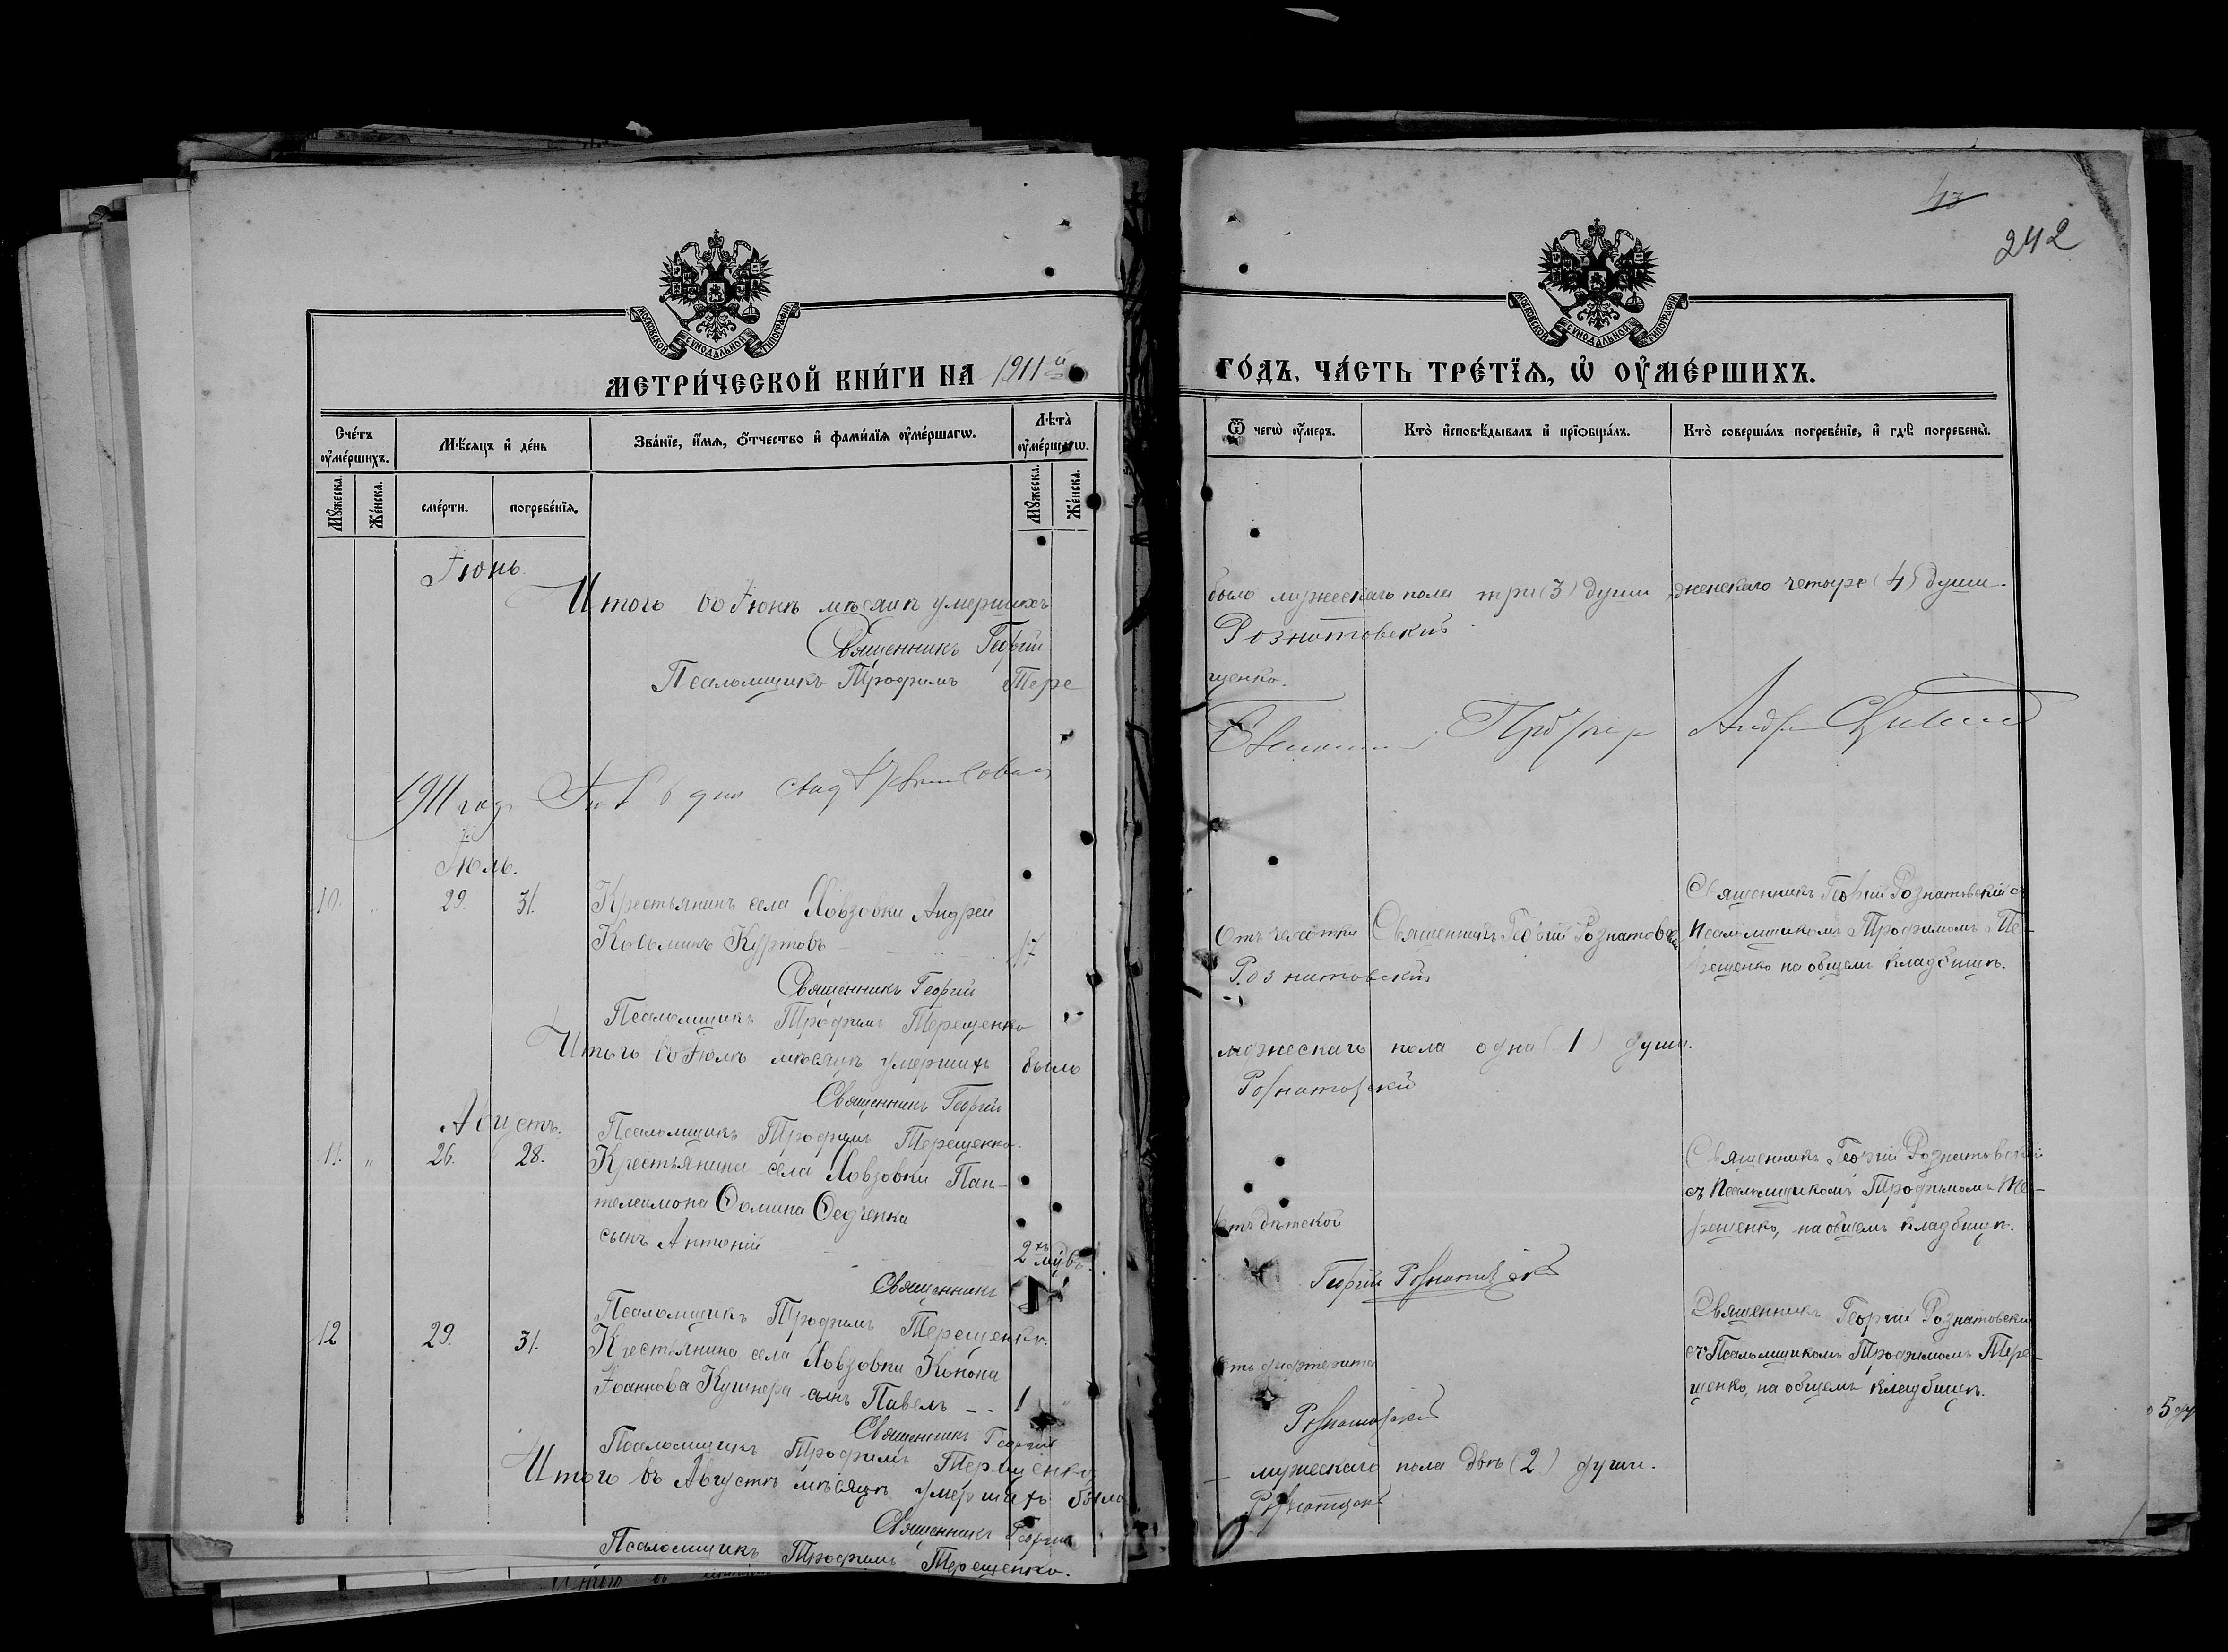 43
242
МОСКОВСКОЙ СѴНОДАЛЬНОЙ ТИПОГРАФІИ
МОСКОВСКОЙ СѴНОДАЛЬНОЙ ТИПОГРАФІИ
МЕТРИ́ЧЕСКОЙ КНИ́ГИ НА 1911й
ГО́ДЪ, ЧА́СТЬ ТРЕ́ТЇѦ, Ѡ҆ ОУ҆МЕ́РШИХЪ.
Сче́тъ оу҆ме́ршихъ.
Мѣ́сѧцъ и҆ де́нь
Зва́нїе, и҆́мѧ, ѻ҆́тчество и҆ фами́лїѧ оу҆ме́ршагѡ.
Лѣ́та оу҆ме́ршагѡ.
Ѿ чегѡ̀ оу҆́меръ.
Кто̀ и҆сповѣ́дывалъ и҆ прїѡбща́лъ.
Кто̀ соверша́лъ погребе́нїе, и҆ гдѣ̀ погребены̀.
Мꙋ́жеска.
Же́нска.
сме́рти.
погребе́нїѧ.
Мꙋ́жеска.
Же́нска.
Іюнь.
Итого въ Іюнѣ мѣсяцѣ умершихъ было мужескаго пола три (3) души, женскаго четыре (4) души.
Священникъ Георгій Рознатовскій
Псаломщикъ Трофимъ Терещенко.
1911 года
дня
Андр
Іюль.
10. 29. 31. Крестьянинъ села Ховзовки Андрей
Косьминъ Куртовъ 17
Отъ чахотки
Священникъ Георгій Рознатовскій
Священникъ Георгій Рознатовскій съ
Псаломщикомъ Трофимомъ Те-
рещенко на общемъ кладбищѣ.
Священникъ Георгій Рознатовскій
Псаломщикъ Трофимъ Терещенко
Итого въ Іюлѣ мѣсяцѣ умершихъ было мужескаго пола одна (1) душа.
Священникъ Георгій Рознатовскій
Псаломщикъ Трофимъ Терещенко.
Августъ.
11. " 26. 28. Крестьянина села Ховзовки Пан-
телеимона Ѳомина Ѳедченка
сынъ Антоній 2хъ мѣс.
Отъ дѣтской
Священникъ Георгій Рознатовскій
съ Псаломщикомъ Трофимомъ Те-
рещенко, на общемъ кладбищѣ.
Священникъ Георгій Рознатовскій
Псаломщикъ Трофимъ Терещенко.
12 29. 31. Крестьянина села Ховзовки Конона
Іоаннова Кушнера сынъ Павелъ 1 "
Отъ дифтерита
Священникъ Георгій Рознатовскій
съ Псаломщикомъ Трофимомъ Тере-
щенко, на общемъ кладбищѣ.
Священникъ Георгій Рознатовскій
Псаломщикъ Трофимъ Терещенко
Итого въ Августѣ мѣсяцѣ умершихъ было мужескаго пола двѣ (2) души.
Священникъ Георгій Рознатовскій
Псаломщикъ Трофимъ Терещенко.